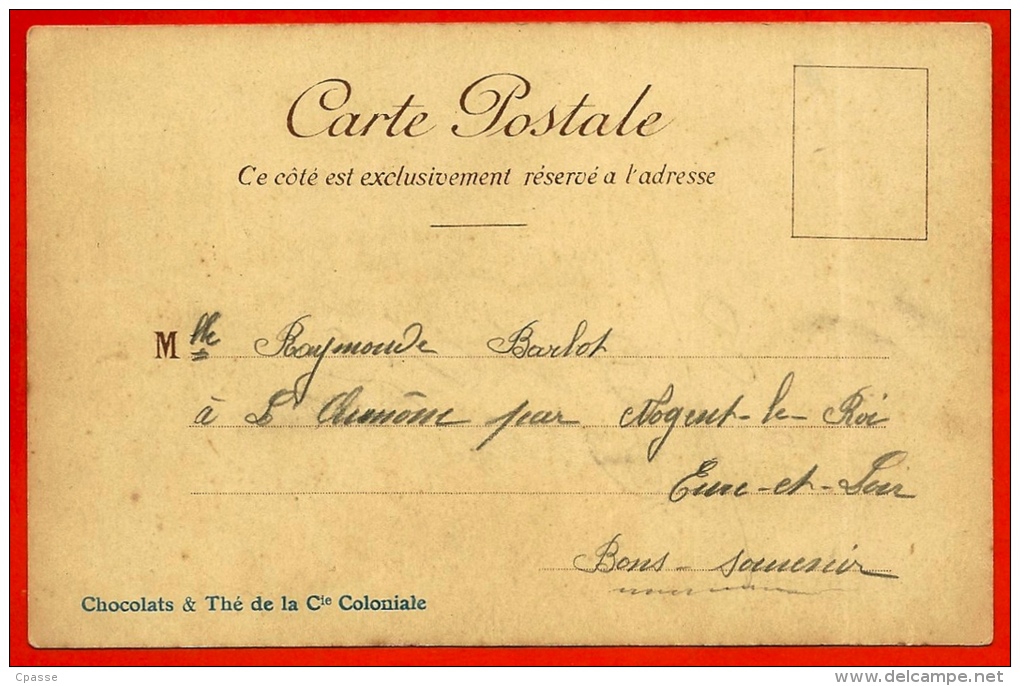 Carte Postale
Ce côté est exclusivement réservé a l'adresse
Mlle Raymonde Barlot
à L'Aumône par Nogent-le-Roi
Eure-et-Loir
Bons-souvenir
Chocolats & Thé de la Cie Coloniale
Cpasse
delcampe.net